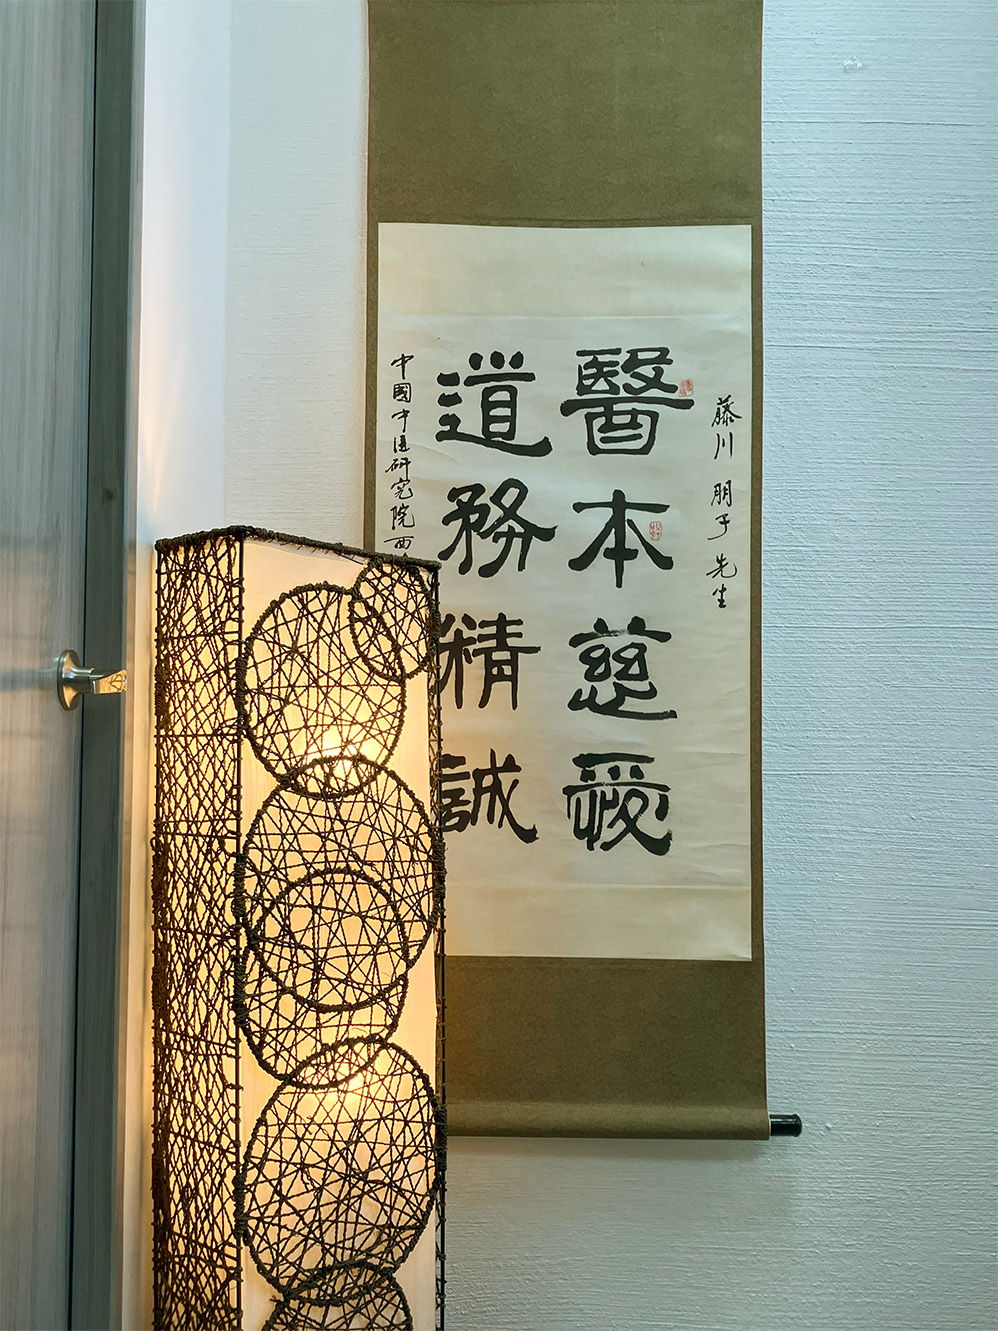 藤川 朋子 先生
醫本慈愛
道務精誠
中國中医研究院西